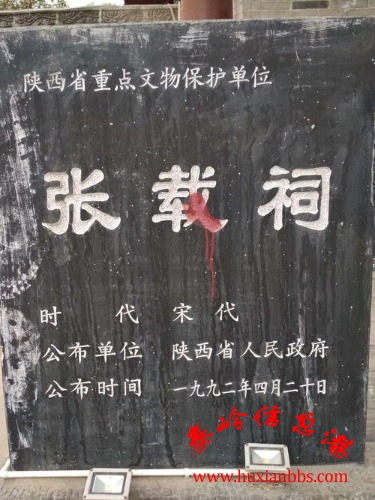 陕西省重点文物保护单位
张载祠
时 代 宋 代
公布单位 陕西省人民政府
公布时间 一九九二年四月二十日
秦岭信息港
www.huxianbbs.com